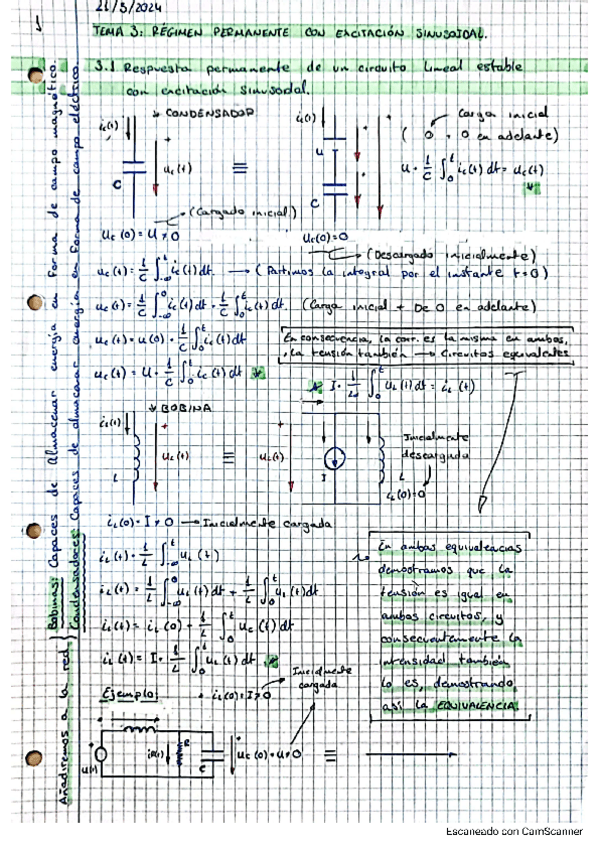 21/3/2024
TEMA 3: RÉGIMEN PERMANENTE CON EXCITACIÓN SINUSOIDAL.
3.1 Respuesta permanente de un circuito lineal estable
con excitación sinusoidal.
Añadiremos a la red:
Bobinas: Capaces de Almacenar energía en forma de campo magnético.
Condensadores: Capaces de almacenar energía en forma de campo eléctrico.
CONDENSADOR
ic(t)
uc(t)
C
≡
ic(t)
U
C
Carga inicial
( 0⁻ + 0 en adelante)
U + 1/C ∫₀ᵗ ic(t) dt = uc(t)
(Cargado inicial.)
uc(0) = U ≠ 0
uc(0) = 0
(Descargado inicialmente)
uc(t) = 1/C ∫₋∞ᵗ ic(t) dt. → (Partimos la integral por el instante t=0)
uc(t) = 1/C ∫₋∞⁰ ic(t) dt + 1/C ∫₀ᵗ ic(t) dt. (Carga inicial + De 0 en adelante)
uc(t) = u(0) + 1/C ∫₀ᵗ ic(t) dt
uc(t) = U + 1/C ∫₀ᵗ ic(t) dt
En consecuencia, la corr. es la misma en ambos,
la tensión también → Circuitos equivalentes
I + 1/L ∫₀ᵗ uL(t) dt = iL(t)
BOBINA
iL(t)
uL(t)
L
≡
uL(t)
I
L
iL(0)=0
Inicialmente
descargada
iL(0) = I ≠ 0 → Inicialmente cargada
iL(t) = 1/L ∫₋∞ᵗ uL(t)
iL(t) = 1/L ∫₋∞⁰ uL(t) dt + 1/L ∫₀ᵗ uL(t) dt
iL(t) = iL(0) + 1/L ∫₀ᵗ uc(t) dt
iL(t) = I + 1/L ∫₀ᵗ uL(t) dt
En ambas equivalencias
demostramos que la
tensión es igual en
ambos circuitos, y
consecuentemente la
intensidad también
lo es, demostrando
así la EQUIVALENCIA.
Ejemplo:
iL(0) = I ≠ 0
Inicialmente
cargada
u(t)
iR(t)
R
C
uc(0) = U ≠ 0
≡
Escaneado con CamScanner